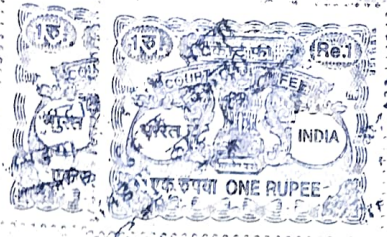 1 रु.
भारत
एक रु
1 रु.
Re.1
COURT FEE
भारत
INDIA
एक रुपया ONE RUPEE